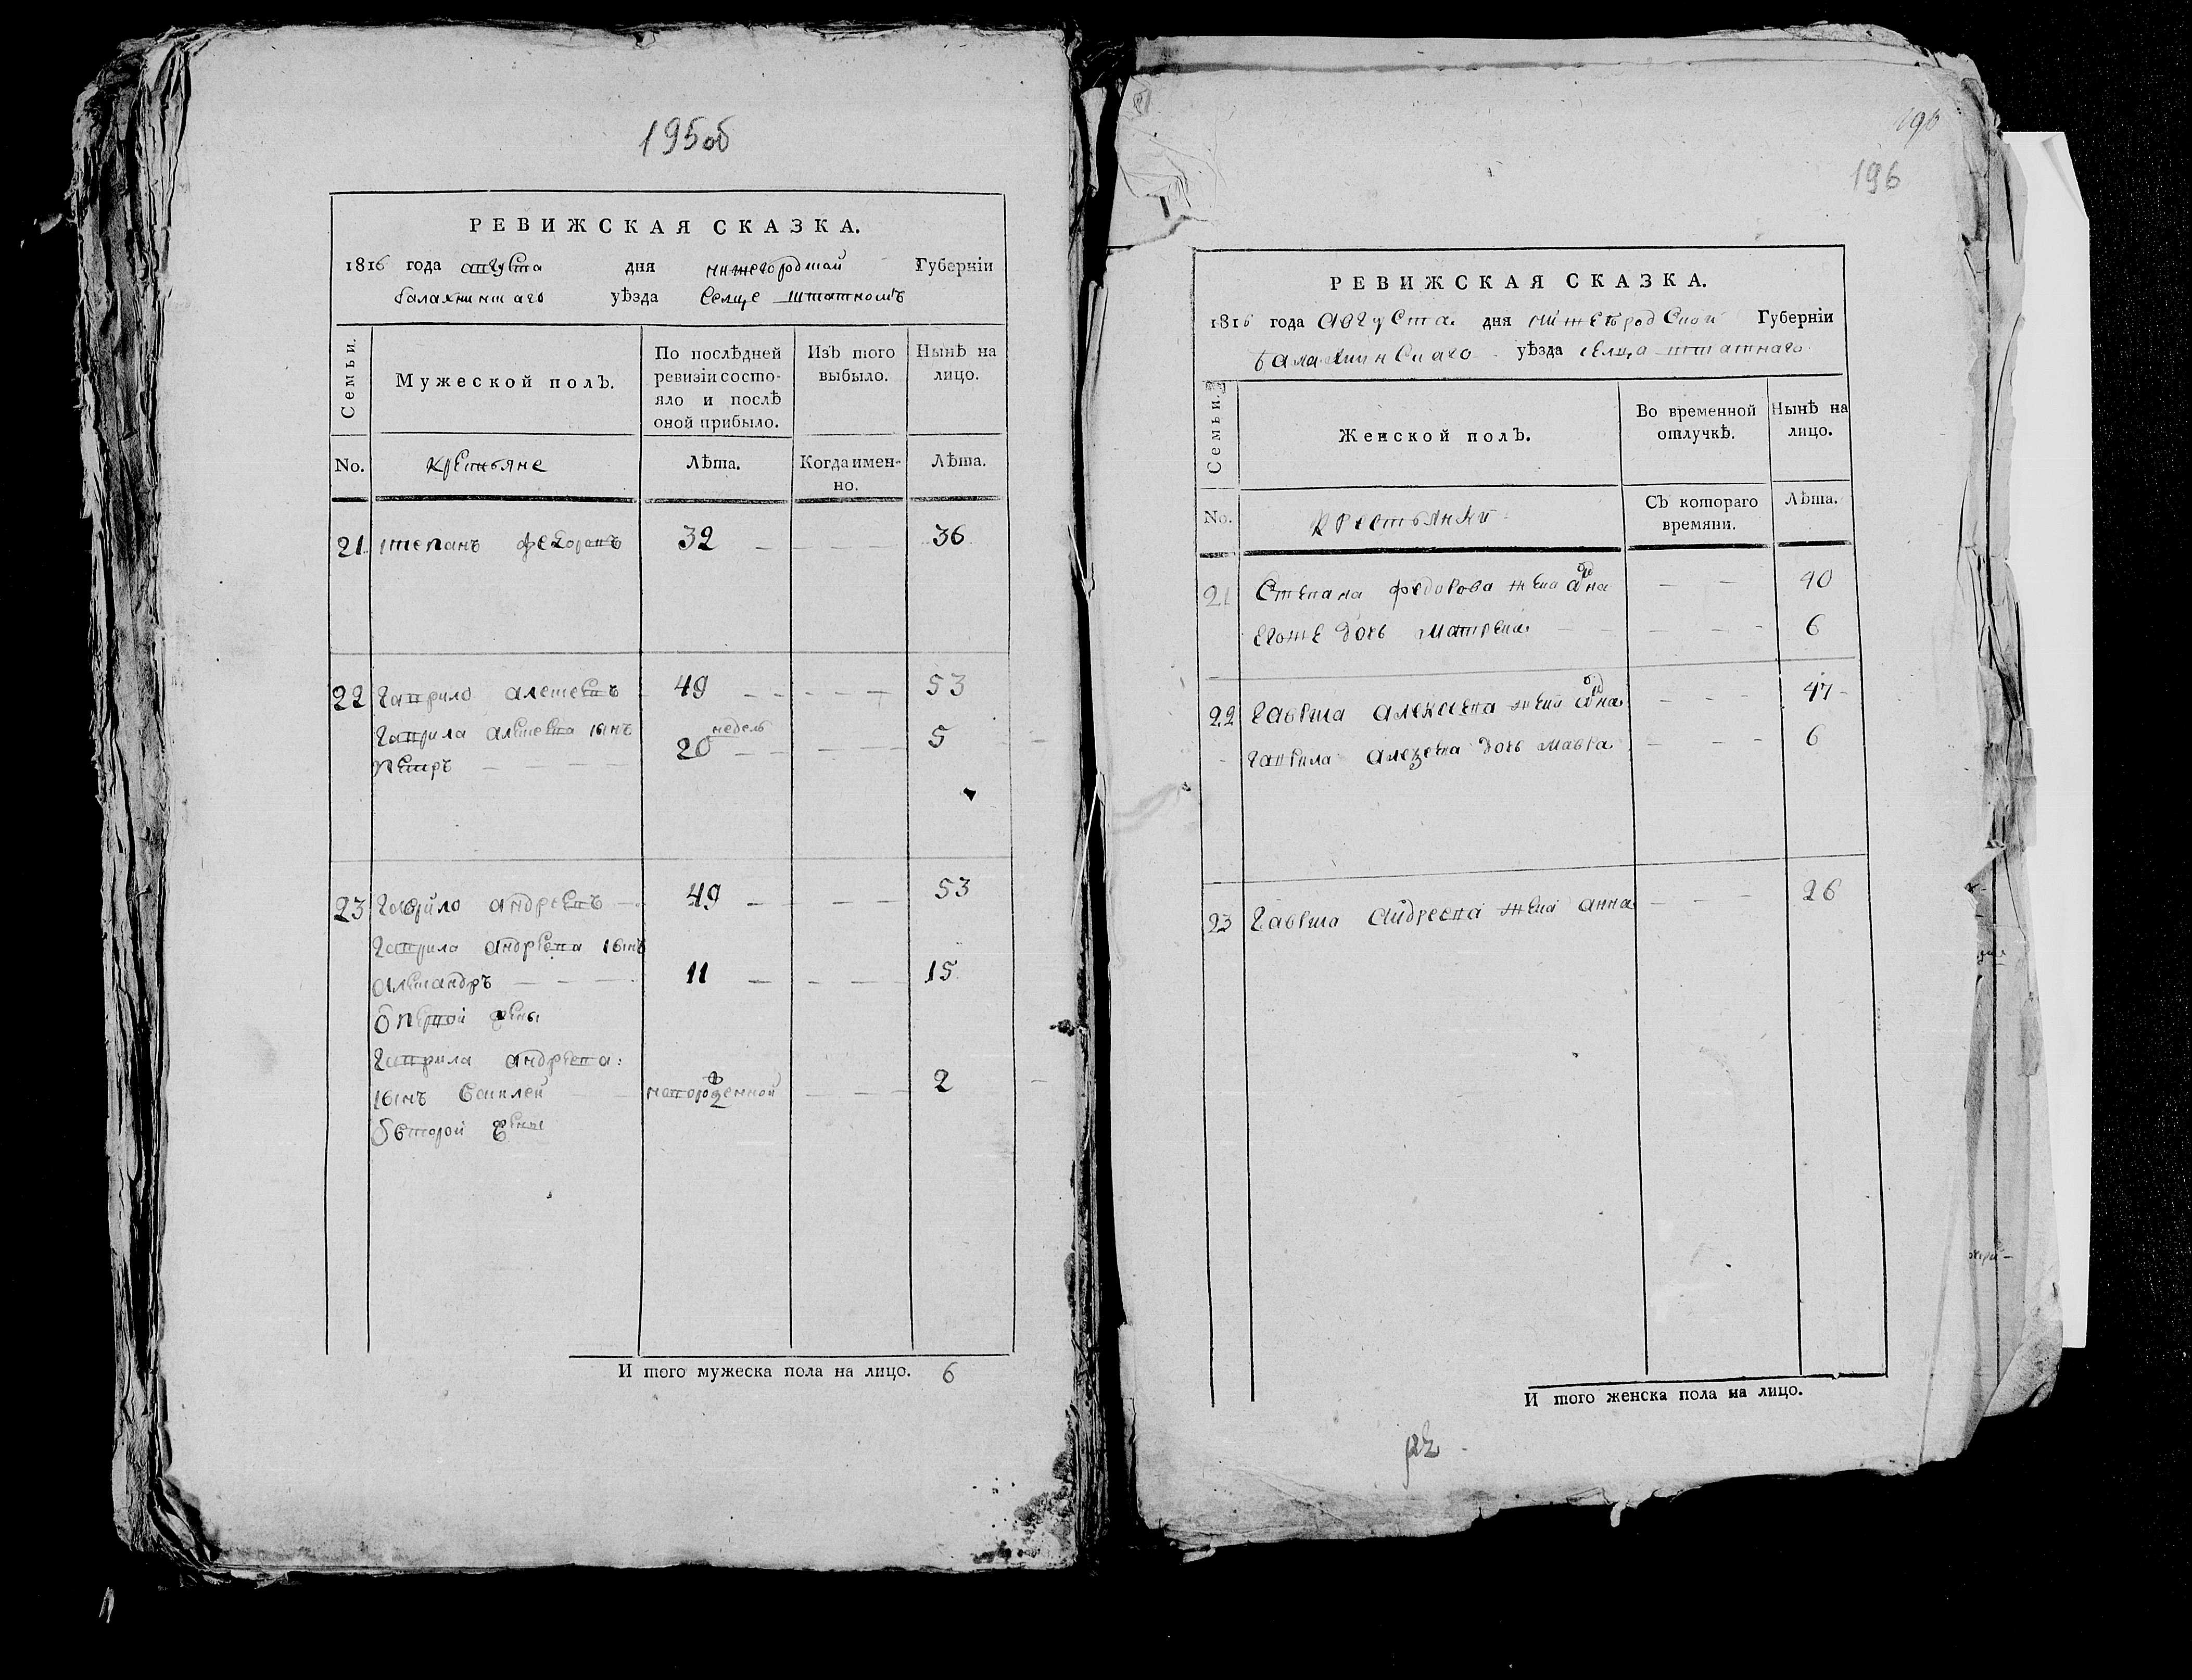 195об
РЕВИЖСКАЯ СКАЗКА.
1816 года августа дня нижегородской Губерніи
балахнинскаго уѣзда Селце штатномъ
Семьи.
Мужеской полъ.
По послѣдней ревизіи состояло и послѣ оной прибыло.
Изъ того выбыло.
Нынѣ на лицо.
No.
крестьяне
Лѣта.
Когда именно.
Лѣта.
21 степанъ федоровъ 32 36
22 Гаврило алексевъ 49 53
Гаврила алексева сынъ 20 недель 5
петръ
23 Гаврило андревъ 49 53
Гаврила андрева сынъ
александръ 11 15
б первой жены
Гаврила андрева:
сынъ василей новорожденной 2
б второй жены
И того мужеска пола на лицо. 6
196
РЕВИЖСКАЯ СКАЗКА.
1816 года августа дня нижегородской Губерніи
балахнинскаго уѣзда селца штатнаго
Семьи.
Женской полъ.
Во временной отлучкѣ.
Нынѣ на лицо.
No.
крестьянки
Съ котораго времяни.
Лѣта.
21 Степана федорова жена 40
егоже дочь матрена 6
22 Гаврила алексева жена 47
Гаврила алексева дочь мавра 6
23 Гаврила андреева жена анна 26
И того женска пола на лицо.